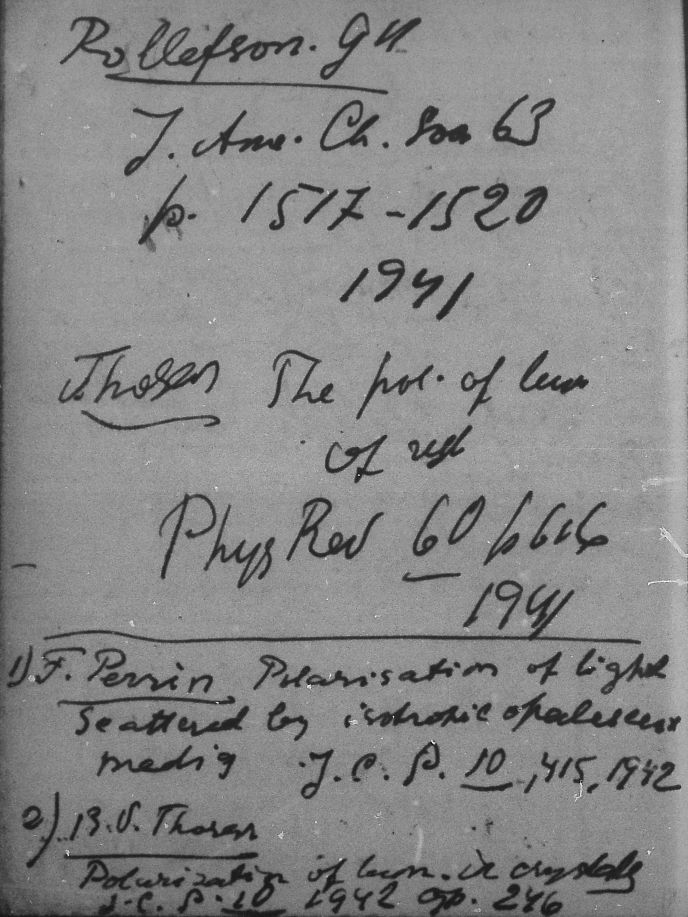 Rollefson. G K
J. Ame. Ch. Soc 63
p. 1517-1520
1941
Thosar The pol. of lum
of
Phys Rev 60 p 616
1941
1) F. Perrin Polarisation of light
scattered by isotropic opalescent
media J. C. P. 10, 415, 1942
2) B.V. Thosar
Polarization of lum. in crystals
J. C. P. 10 1942 cp. 246